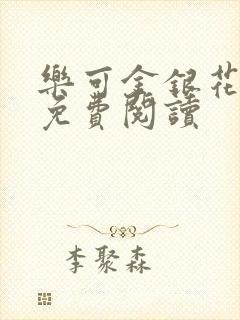 樂可金銀花
免費閱讀
李聚森